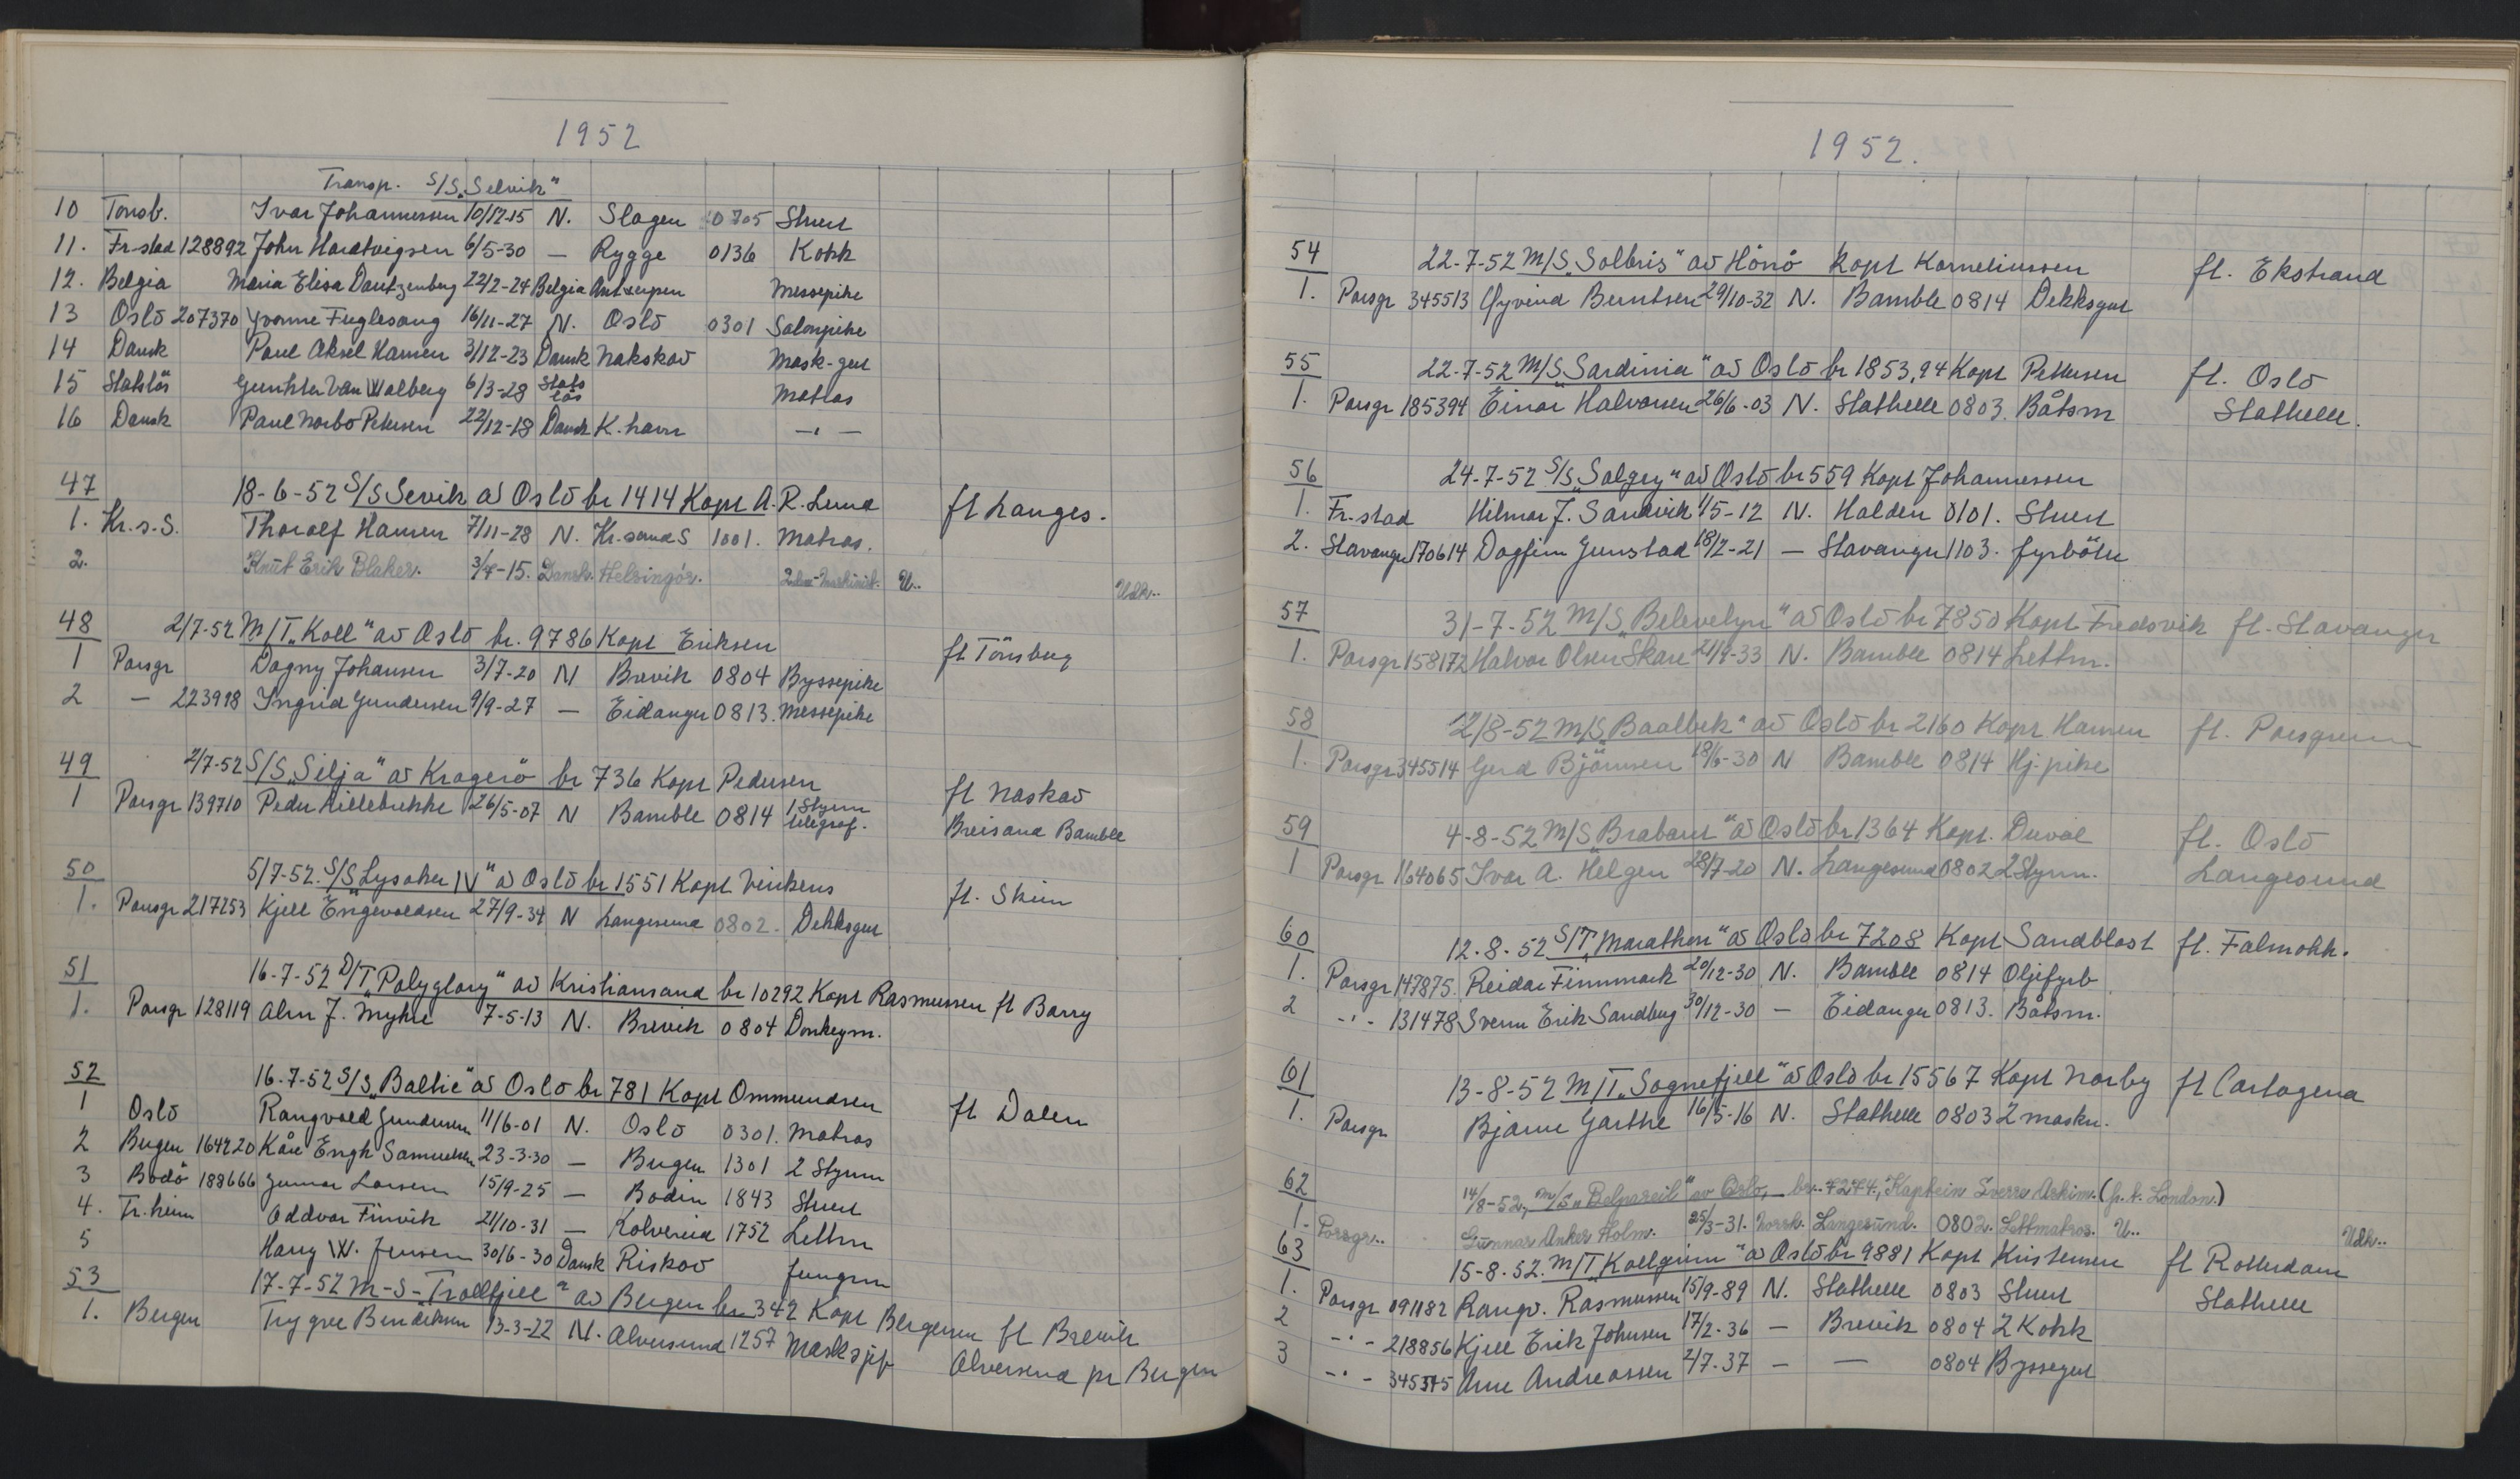 1952
Transp. S/S „Selvik"
10 Tønsb. Ivar Johannessen 10/12-15 N. Slagen 0705 Stuert
11. Fr-stad 128892 John Hardtvigsen 6/5-30 — Rygge 0136 Kokk
12. Belgia Maria Elisa Dautzenberg 22/2-24 Belgia Antwerpen Messepike
13 Oslo 207370 Yvonne Fuglesang 16/11-27 N. Oslo 0301 Salonpike
14 Dansk Poul Aksel Hansen 3/12-23 Dansk Nakskov Mask-gut
15 Statsløs Gunther Van Walberg 6/3-28 Stats løs Matros
16 Dansk Paul Norbo Petersen 22/12-18 Dansk K.havn —"—
47 18-6-52 S/S Sevik av Oslo br 1414 Kapt A. R. Lund ft Langes.
1. Kr.s.S. Thorolf Hansen 7/11-28 N. Kr.sand S 1001. Matros.
2. Knut Erik Blaker. 3/4-15. Dansk. Helsingør. 2den Maskinist. U.. Udk..
48 2/7-52 M/T „Koll" av Oslo br. 9786 Kapt Eriksen ft Tönsberg
1 Porsgr Dagny Johansen 3/7-20 N Brevik 0804 Byssepike
2 — 223998 Ingrid Gundersen 9/9-27 — Eidanger 0813. Messepike
49 2/7-52 S/S „Silja" av Kragerö br 736 Kapt Pedersen ft Naskov
1 Porsgr 139710 Peder Lillebrekke 26/5-07 N Bamble 0814 1 Styrm telegraf. Breisand Bamble
50 5/7-52. S/S Lysaker IV" av Oslo br 1551 Kapt Vinkens ft. Skien
1. Porsgr 217253 Kjell Engevoldsen 27/9-34 N Langesund 0802. Dekksgut
51 16-7-52 D/T „Polyglory" av Kristiansand br 10292 Kapt Rasmussen ft Barry
1. Porsgr 128119 Alm J. Myhre 7-5-13 N. Brevik 0804 Donkeym.
52 16-7-52 S/S „Baltic" av Oslo br 781 Kapt Ommundsen ft Dalen
1 Oslo Rangvald Gundersen 11/6-01 N. Oslo 0301. Matros
2 Bergen 164220 Kåre Engh Samuelsen 23-3-30 — Bergen 1301 2 Styrm
3 Bodö 188666 Gunnar Larsen 15/9-25 — Bodin 1843 Stuert
4. Tr.heim Oddvar Finvik 21/10-31 — Kolvereid 1752 Lettm
5 Harry W. Jensen 30/6-30 Dansk Riskov Jungm
53 17-7-52 M-S-Trollfjell" av Bergen br 342 Kapt Bergersen ft Brevik
1. Bergen Trygve Bendiksen 13-3-22 N. Alversund 1257 Masksjef Alversund pr Bergen
1952.
54 22-7-52 M/S „Solbris" av Hönö Kapt Korneliussen ft. Ekstrand
1. Porsgr 345513 Øyvind Berntsen 29/10-32 N. Bamble 0814 Dekksgut
55 22-7-52 M/S „Sardinia" av Oslo br 1853,94 Kapt Pettersen ft. Oslo
1. Porsgr 185394 Einar Halvorsen 26/6-03 N. Stathelle 0803. Båtsm Stathelle.
56 24-7-52 S/S „Solgry" av Oslo br 559 Kapt Johannessen
1. Fr.stad Hilmar J. Sandvik 1/5-12 N. Halden 0101. Stuert
2. Stavanger 170614 Dagfinn Junstad 18/2-21 — Stavanger 1103. fyrböter
57 31-7-52 M/S „Belevelyn" av Oslo br 7850 Kapt Fredsvik ft. Stavanger
1. Porsgr 158172 Halvor Olsen Skare 21/9-33 N. Bamble 0814 Lettm.
58 12/8-52 M/S „Baalbek" av Oslo br 2160 Kapt Hansen ft. Porsgrunn
1. Porsgr 345514 Gerd Björnsen 18/6-30 N Bamble 0814 Hj.pike
59 4-8-52 M/S Brabant" av Oslo br 1364 Kapt. Duval ft. Oslo
1 Porsgr 164065 Ivar A. Helgen 28/7-20 N. Langesund 0802 2 Styrm. Langesund
60 12.8.52 S/T „Marathon" av Oslo br 7208 Kapt Sandblost ft. Falmokk.
1. Porsgr 147875. Reidar Finnmark 20/12-30 N. Bamble 0814 Oljefyrb
2 -"- 131478 Sverre Erik Sandberg 30/12-30 — Eidanger 0813. Båtsm.
61 13-8-52 M/T „Sognefjell" av Oslo br 15567 Kapt Norby ft Cartagena
1. Porsgr Bjarne Garthe 16/5-16 N. Stathelle 0803 2 maskn.
62 14/8-52, M/S „Belpareil" av Oslo, — br. 7274., Kaptein Sverre Askim. (fr. t. London.)
1. Porsgr.. Gunnar Anker Holm. 25/3-31. Norsk. Langesund. 0802. Lettmatros. U.. Udk..
63 15-8-52. M/T „Kollgrim" av Oslo br 9881 Kapt Kristensen ft Rotterdam
1. Porsgr 091182 Rangv. Rasmussen 15/9-89 N. Stathelle 0803 Stuert Stathelle
2 -"- 218856 Kjell Erik Johnsen 17/2-36 — Brevik 0804 2 Kokk
3 -"- 345515 Arne Andreassen 2/7-37 — — 0804 Byssegut